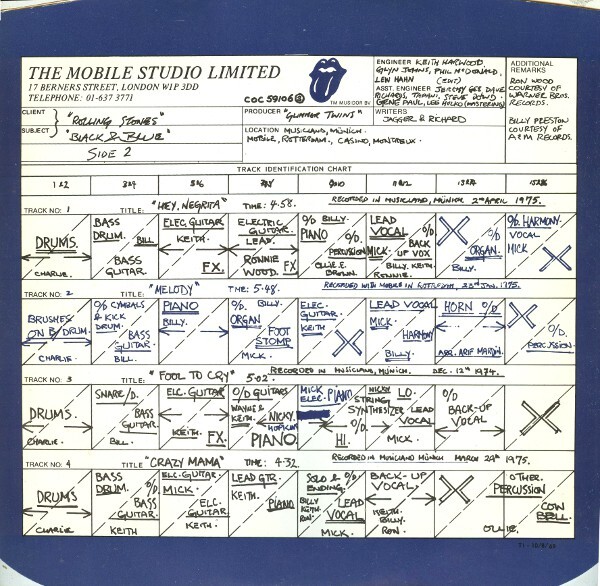 THE MOBILE STUDIO LIMITED
17 BERNERS STREET, LONDON W1P 3DD
TELEPHONE: 01-637 3771
COC 59106
TM MUSIDOR BV
CLIENT "ROLLING STONES"
SUBJECT "BLACK & BLUE"
SIDE 2
PRODUCER "GLIMMER TWINS"
LOCATION MUSICLAND, MÜNICH.
MOBILE, ROTTERDAM, CASINO, MONTREUX.
ENGINEER KEITH HARWOOD,
GLYN JOHNS, PHIL McDONALD,
LEW HAHN (EDIT)
ASST. ENGINEER JEREMY GEE DAVE
RICHARDS, TAPANI, STEVE DOWD,
GENE PAUL, LEE HULKO (MASTERING)
WRITERS
JAGGER & RICHARD
ADDITIONAL
REMARKS
RON WOOD
COURTESY OF
WARNER BROS.
RECORDS.
BILLY PRESTON
COURTESY OF
A&M RECORDS.
TRACK IDENTIFICATION CHART
1&2 3&4 5&6 7&8 9&10 11&12 13&14 15&16
TRACK NO: 1 TITLE: "HEY, NEGRITA" TIME: 4·58. RECORDED IN MUSICLAND, MÜNICH 2nd APRIL 1975.
DRUMS.
CHARLIE.
BASS
DRUM. BILL
BASS
GUITAR.
ELEC GUITAR
KEITH.
FX.
ELECTRIC
GUITAR.
LEAD.
RONNIE
WOOD. FX
O/D BILLY.
PIANO
O/D.
PERCUSSION
OLLIE E.
BROWN.
LEAD
VOCAL O/D
MICK. BACK
UP VOX
BILLY. KEITH.
RONNIE.
O/D.
ORGAN.
BILLY.
O/D. HARMONY
VOCAL
MICK
TRACK NO: 2 TITLE: "MELODY" TIME: 5·48. RECORDED WITH MOBILE IN ROTTERDAM, 23rd JAN. 1975.
BRUSHES
ON B/DRUM.
CHARLIE
O/D CYMBALS
& KICK
DRUM.
BASS
GUITAR.
BILL.
PIANO
BILLY.
O/D. BILLY.
ORGAN
FOOT
STOMP
MICK.
ELEC.
GUITAR
KEITH
LEAD VOCAL
MICK.
HARMONY
BILLY.
HORN O/D
ARR. ARIF MARDIN.
O/D.
PERCUSSION.
TRACK NO: 3 TITLE: "FOOL TO CRY" 5·02. RECORDED IN MUSICLAND, MÜNICH. DEC. 12th 1974.
DRUMS.
CHARLIE
SNARE/D.
BASS
GUITAR.
BILL.
ELC. GUITAR
KEITH.
FX.
O/D GUITARS
WAYNE &
KEITH.
NICKY
HOPKINS
PIANO.
MICK
ELEC. PIANO
HI.
NICKY
STRING
SYNTHESIZER
LO.
LEAD
VOCAL
MICK.
O/D
BACK-UP
VOCAL
TRACK NO: 4 TITLE "CRAZY MAMA" TIME: 4·32. RECORDED IN MUSICLAND MÜNICH MARCH 29th 1975.
DRUMS
CHARLIE
BASS
DRUM. O/D.
BASS
GUITAR.
KEITH
ELC. GUITAR
MICK.
ELC.
GUITAR
KEITH.
LEAD GTR.
KEITH.
PIANO
SOLO & O/D
ENDING.
BILLY
KEITH.
RON.
LEAD
VOCAL
MICK.
BACK-UP
VOCAL.
KEITH.
BILLY.
RON.
OTHER.
PERCUSSION
COW
BELL.
OLLIE.